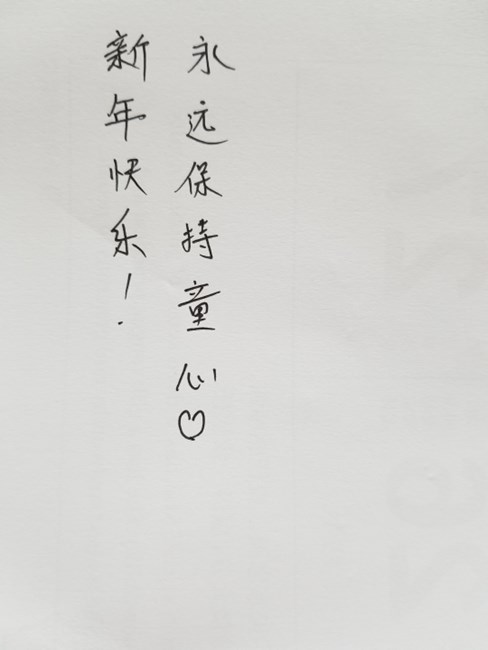 永远保持童心♡
新年快乐！